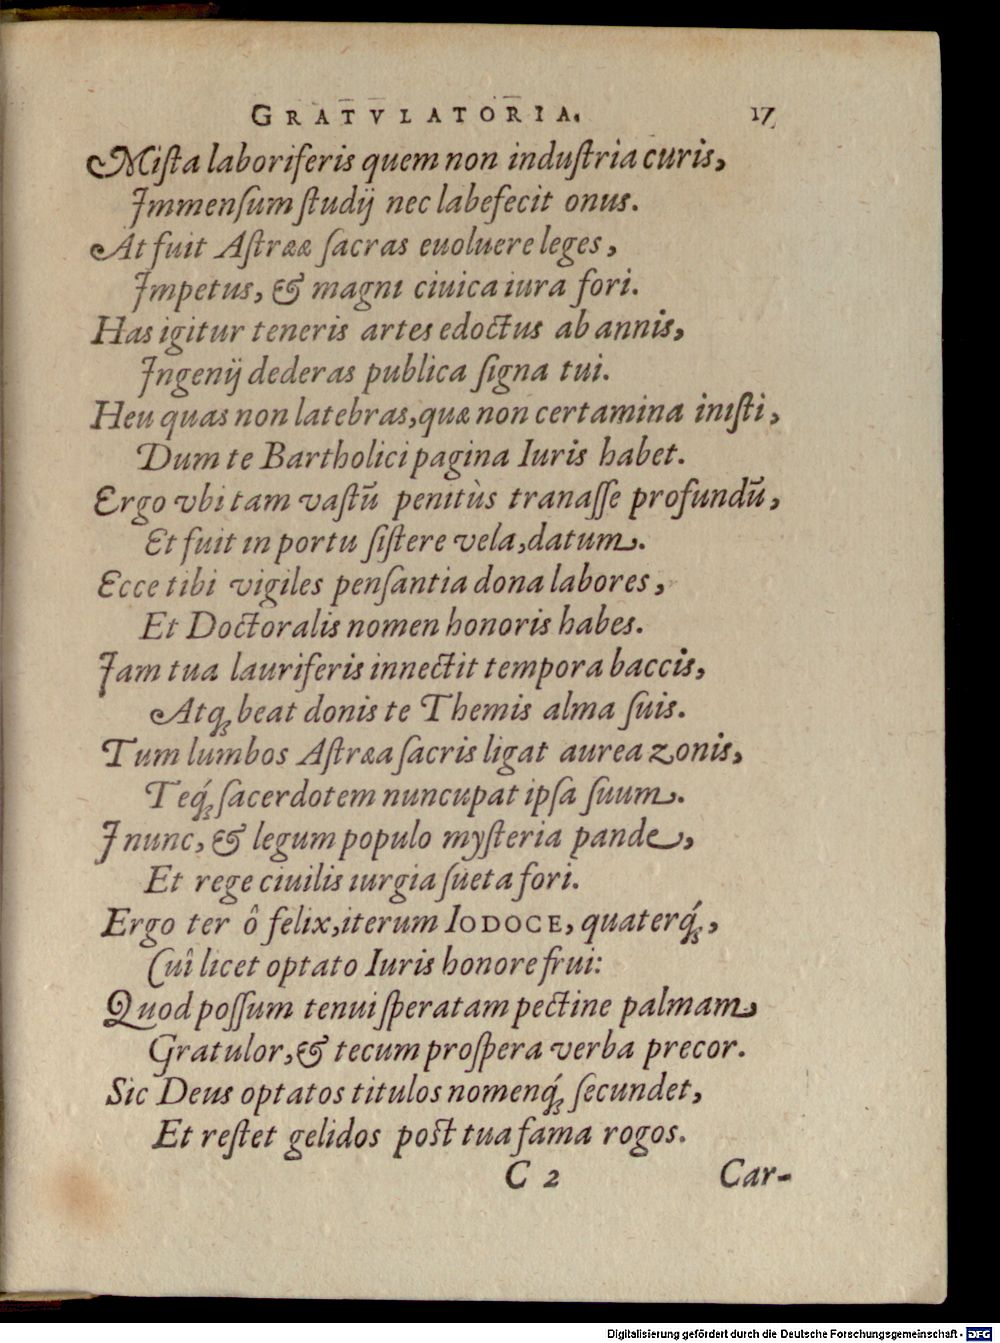 GRATVLATORIA. 17
Mista laboriferis quem non industria curis,
Immensum studij nec labefecit onus.
At fuit Astrææ sacras euoluere leges,
Impetus, & magni ciuica iura fori.
Has igitur teneris artes edoctus ab annis,
Ingenij dederas publica signa tui.
Heu quas non latebras, quæ non certamina inisti,
Dum te Bartholici pagina Iuris habet.
Ergo vbi tam vastũ penitùs tranasse profundũ,
Et fuit in portu sistere vela, datum.
Ecce tibi vigiles pensantia dona labores,
Et Doctoralis nomen honoris habes.
Iam tua lauriferis innectit tempora baccis,
Atq; beat donis te Themis alma suis.
Tum lumbos Astræa sacris ligat aurea zonis,
Teq́; sacerdotem nuncupat ipsa suum.
I nunc, & legum populo mysteria pande,
Et rege ciuilis iurgia sueta fori.
Ergo ter ô felix, iterum IODOCE, quaterq́;,
Cuî licet optato Iuris honore frui:
Quod possum tenui speratam pectine palmam
Gratulor, & tecum prospera verba precor.
Sic Deus optatos titulos nomenq́; secundet,
Et restet gelidos post tua fama rogos.
C 2 Car-
Digitalisierung gefördert durch die Deutsche Forschungsgemeinschaft - DFG